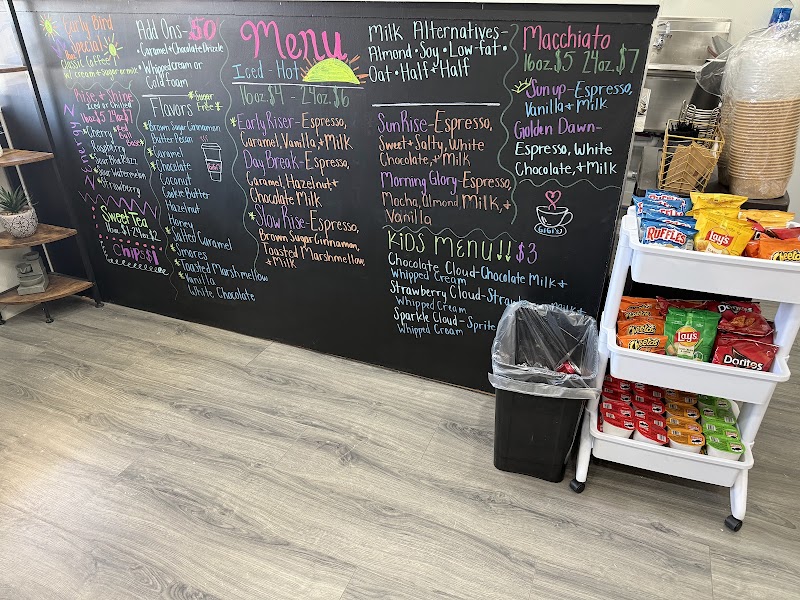 Early Bird
Special
Classic Coffee
w/ cream + sugar or milk
Rise + Shine
Iced or Chilled
16oz $5 24oz $7
Energy
Cherry
Raspberry
Blue Razz
Watermelon
Strawberry
Red
Bull
Base
Sweet Tea
16oz $1 24oz $2
Chips $1
Add Ons - .50
• Caramel + Chocolate Drizzle
• Whipped cream or
Cold foam
Flavors
*Sugar
Free*
*Brown Sugar Cinnamon
Butter Pecan
*Caramel
*Chocolate
Coconut
Cookie Butter
Hazelnut
Honey
*Salted Caramel
*Smores
*Toasted Marshmellow
*Vanilla
White Chocolate
Menu
Iced - Hot
16oz. $4 - 24oz. $6
*Early Riser - Espresso,
Caramel, Vanilla + Milk
Day Break - Espresso,
Caramel, Hazelnut +
Chocolate Milk
*Slow Rise - Espresso,
Brown Sugar Cinnamon,
+ Milk
Milk Alternatives -
Almond • Soy • Low-fat •
Oat • Half + Half
SunRise - Espresso,
Sweet + Salty, White
Chocolate, + Milk
Morning Glory - Espresso,
Mocha, Almond Milk, +
Vanilla
KiDS MENU!! $3
Chocolate Cloud - Chocolate Milk +
Whipped Cream
Strawberry Cloud - Milk +
Whipped Cream
Sparkle Cloud - Sprite
Whipped Cream
Macchiato
16oz. $5 24oz. $7
Sun up - Espresso,
Vanilla + Milk
Golden Dawn -
Espresso, White
Chocolate, + Milk
GiGi's
RUFFLES
Lay's
Cheetos
Cheetos
Lay's
Doritos
Cheetos
Doritos